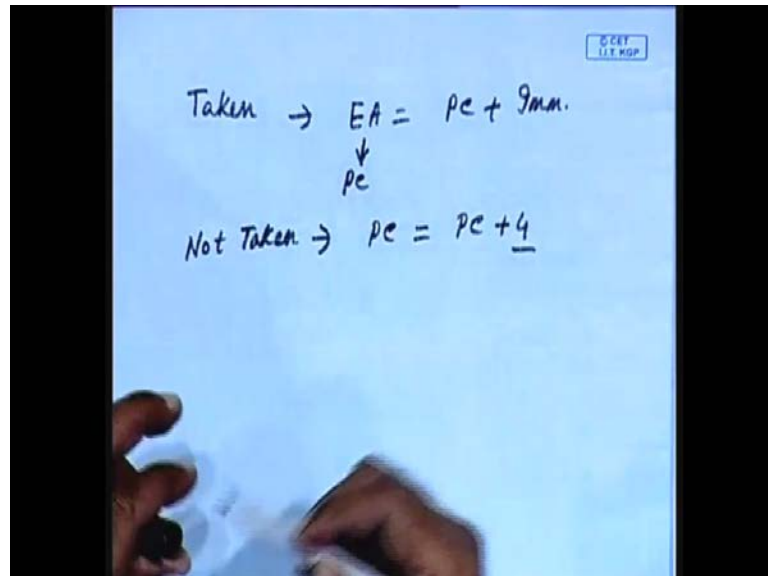 © CET
I.I.T. KGP
Taken → EA = PC + Imm.
↓
PC
Not Taken → PC = PC + 4